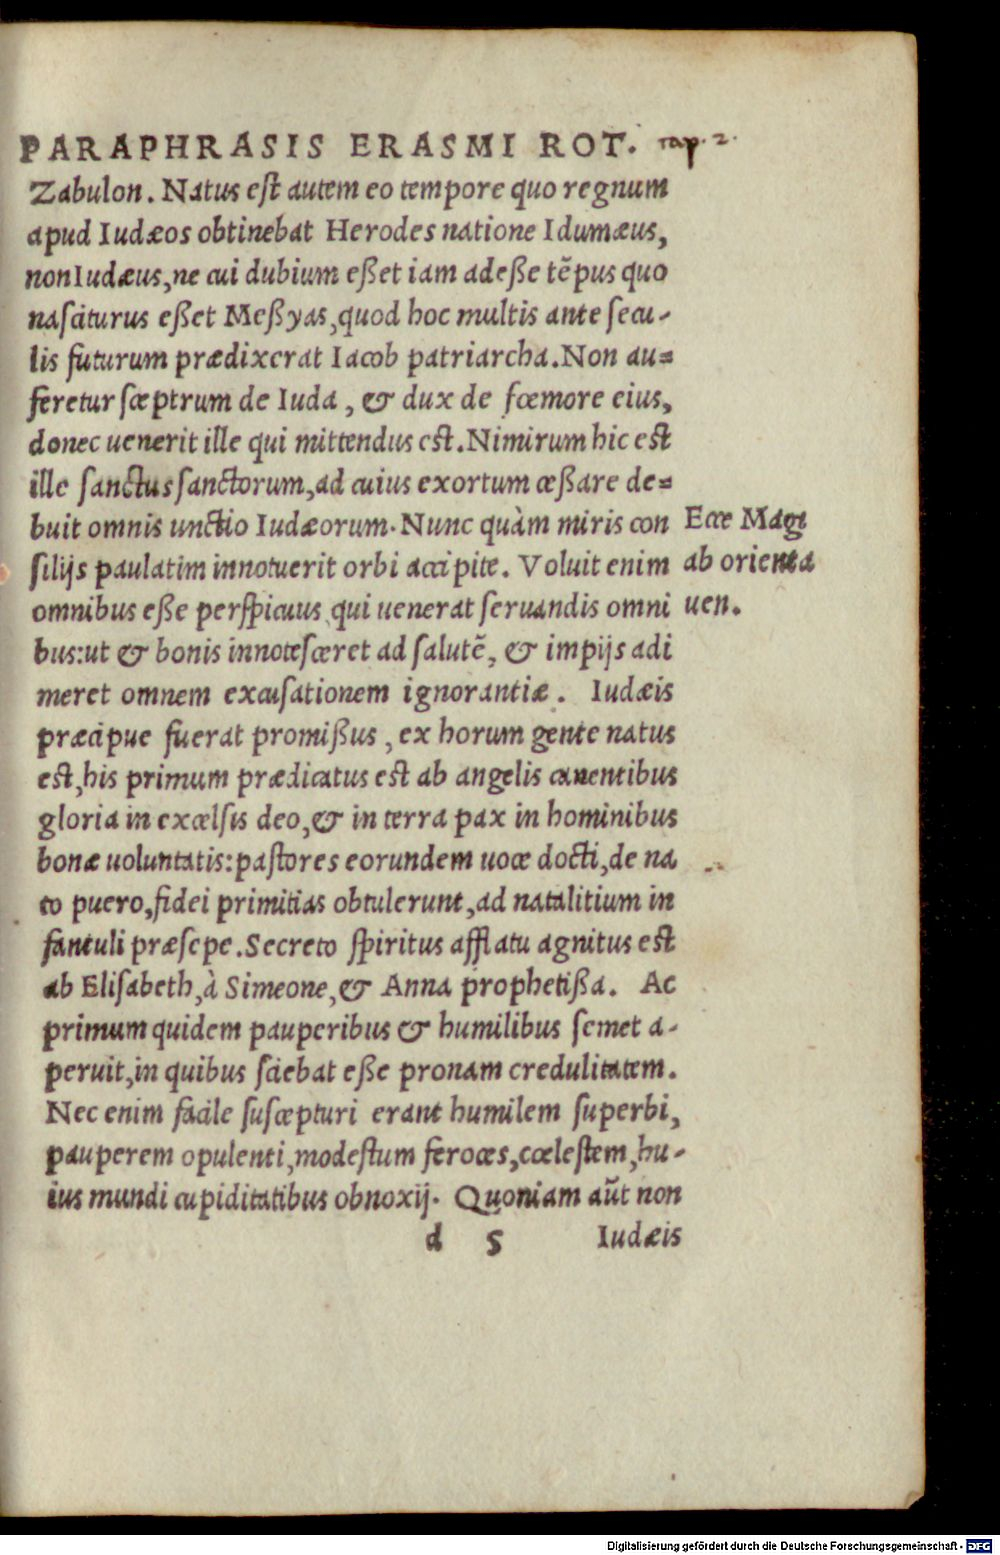 PARAPHRASIS ERASMI ROT. cap. 2.
Zabulon. Natus est autem eo tempore quo regnum
apud Iudæos obtinebat Herodes natione Idumæus,
non Iudæus, ne cui dubium eßet iam adeße tẽpus quo
nasciturus eßet Meßyas, quod hoc multis ante secu-
lis futurum prædixerat Iacob patriarcha. Non au=
feretur sceptrum de Iuda, & dux de fœmore eius,
donec uenerit ille qui mittendus est. Nimirum hic est
ille sanctus sanctorum, ad cuius exortum ceßare de=
buit omnis unctio Iudæorum. Nunc quàm miris con
silijs paulatim innotuerit orbi accipite. Voluit enim
omnibus eße perspicuus, qui uenerat seruandis omni
bus: ut & bonis innotesceret ad salutẽ, & impijs adi
meret omnem excusationem ignorantiæ. Iudæis
præcipue fuerat promißus, ex horum gente natus
est, his primum prædicatus est ab angelis canentibus
gloria in excelsis deo, & in terra pax in hominibus
bonæ uoluntatis: pastores eorundem uoce docti, de na
to puero, fidei primitias obtulerunt, ad natalitium in
fantuli præsepe. Secreto spiritus afflatu agnitus est
ab Elisabeth, à Simeone, & Anna prophetißa. Ac
primum quidem pauperibus & humilibus semet a-
peruit, in quibus sciebat eße pronam credulitatem.
Nec enim facile suscepturi erant humilem superbi,
pauperem opulenti, modestum feroces, cœlestem, hu-
ius mundi cupiditatibus obnoxij. Quoniam aũt non
d 5 Iudæis
Ecce Magi
ab orienta
uen.
Digitalisierung gefördert durch die Deutsche Forschungsgemeinschaft - DFG